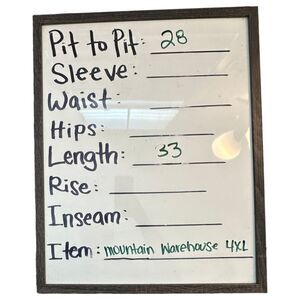 Pit to Pit: 28
Sleeve:
Waist:
Hips:
Length: 33
Rise:
Inseam:
Item: mountain Warehouse 4XL